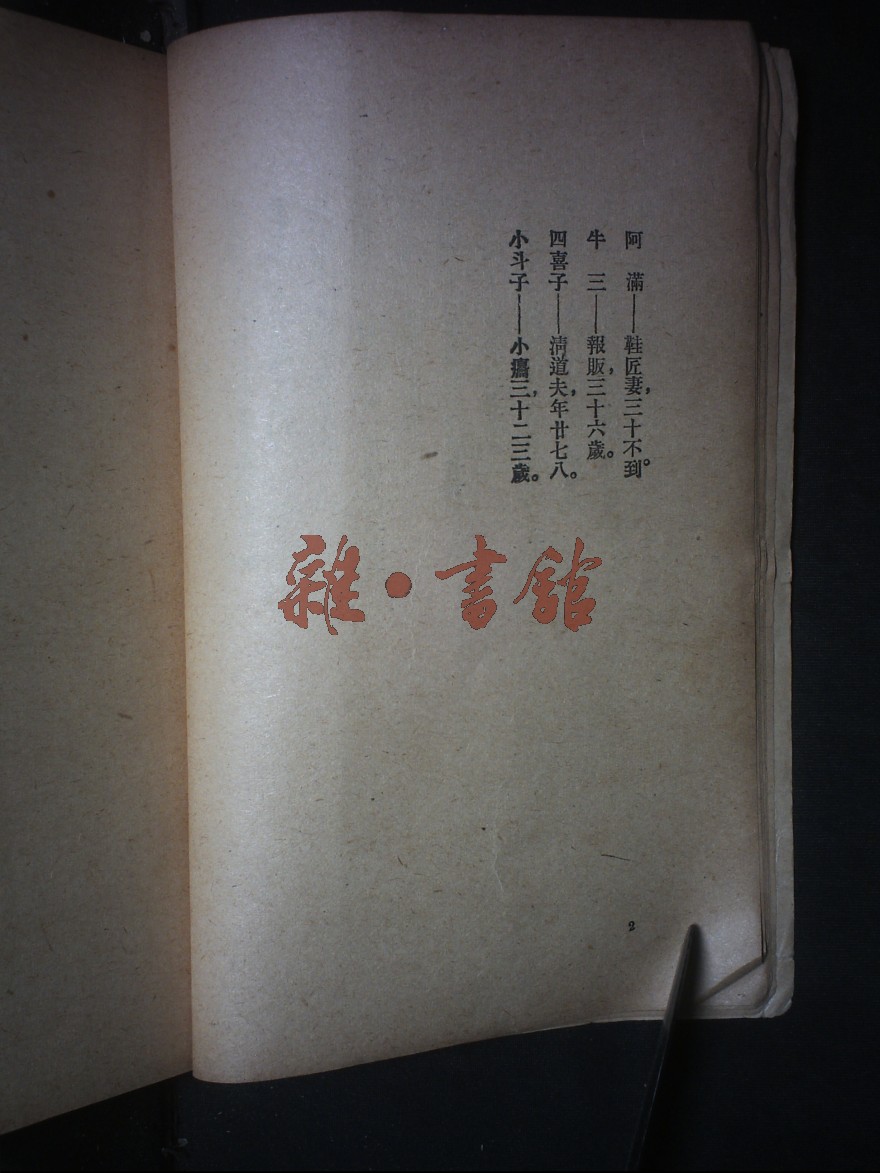 阿　滿——鞋匠妻，三十不到。
牛　三——報販，三十六歲。
四喜子——清道夫，年廿七八。
小斗子——小癟三，十二三歲。
雜·書館
2